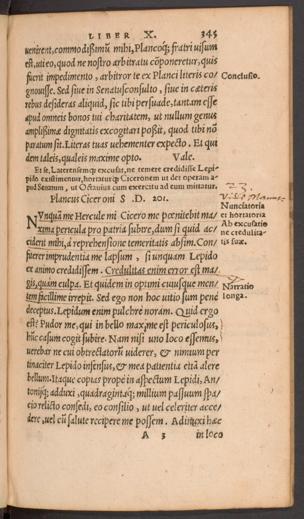 LIBER X. 345
uenirent, commodissimũ mihi, Plancoq; fratri uisum
est, uti eo, quod ne nostro arbitratu cõponeretur, quis
fuerit impedimento, arbitror te ex Planci literis co-
gnouisse. Sed siue in Senatusconsulto, siue in cæteris
rebus desideras aliquid, sic tibi persuade, tantam esse
apud omneis bonos tui charitatem, ut nullum genus
amplissimæ dignitatis excogitari possit, quod tibi nõ
paratum sit. Literas tuas uehementer expecto. Et qui
dem taleis, qualeis maxime opto. Vale.
Conclusio.
Et se, Laterensemq; excusat, ne temere credidisse Lepi-
pido existimentur, hortaturq; Ciceronem ut det operam a-
pud Senatum, ut Octauius cum exercitu ad eum mittatur.
Plancus Ciceroni S. D. 201.
NVnquã me Hercule mi Cicero me pœnitebit ma-
xima pericula pro patria subire, dum si quid ac-
ciderit mihi, à reprehensione temeritatis absim. Con-
fiterer imprudentia me lapsum, si unquam Lepido
ex animo credidissem. Credulitas enim error est ma-
gis, quàm culpa. Et quidem in optimi cuiusque men-
tem facillime irrepit. Sed ego non hoc uitio sum penè
deceptus. Lepidum enim pulchrè noram. Quid ergo
est? Pudor me, qui in bello maxime est periculosus,
hũc casum cogit subire. Nam nisi uno loco essemus,
uerebar ne cui obtrectatorũ uiderer, & nimium per
tinaciter Lepido infensus, & mea patientia etiã alere
bellum. Itaque copias propè in aspectum Lepidi, An-
tonijq; adduxi, quadragintaq; millium passuum spa-
cio relicto consedi, eo consilio, ut uel celeriter acce-
dere, uel cũ salute recipere me possem. Adiunxi hæc
Nunciatoria
et hortatoria
Ab excusatio
ne credulita-
tis suæ.
Narratio
longa.
A 3 in loco